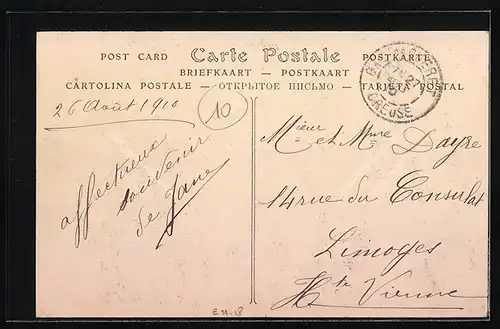 POST CARD Carte Postale POSTKARTE
BRIEFKAART — POSTKAART
CARTOLINA POSTALE — ОТКРЫТОЕ ПИСЬМО — TARJETA POSTAL
CREUSE
26 Août 1910
10
affectueux
souvenir
de Jane
Mieur et Mme Dayre
14 rue du Consulat
Limoges
Hte Vienne
E M-18